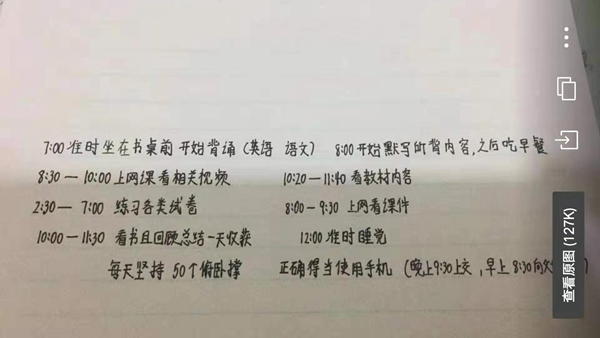 7:00 准时坐在书桌前 开始背诵 (英语 语文) 8:00开始默写所背内容,之后吃早餐
8:30 — 10:00 上网课看相关视频 10:20 — 11:40 看教材内容
2:30 — 7:00 练习各类试卷 8:00 — 9:30 上网看课件
10:00 — 11:30 看书且回顾总结一天收获 12:00 准时睡觉
每天坚持 50个俯卧撑 正确得当使用手机 (晚上9:30上交,早上8:30向
查看原图 (127K)